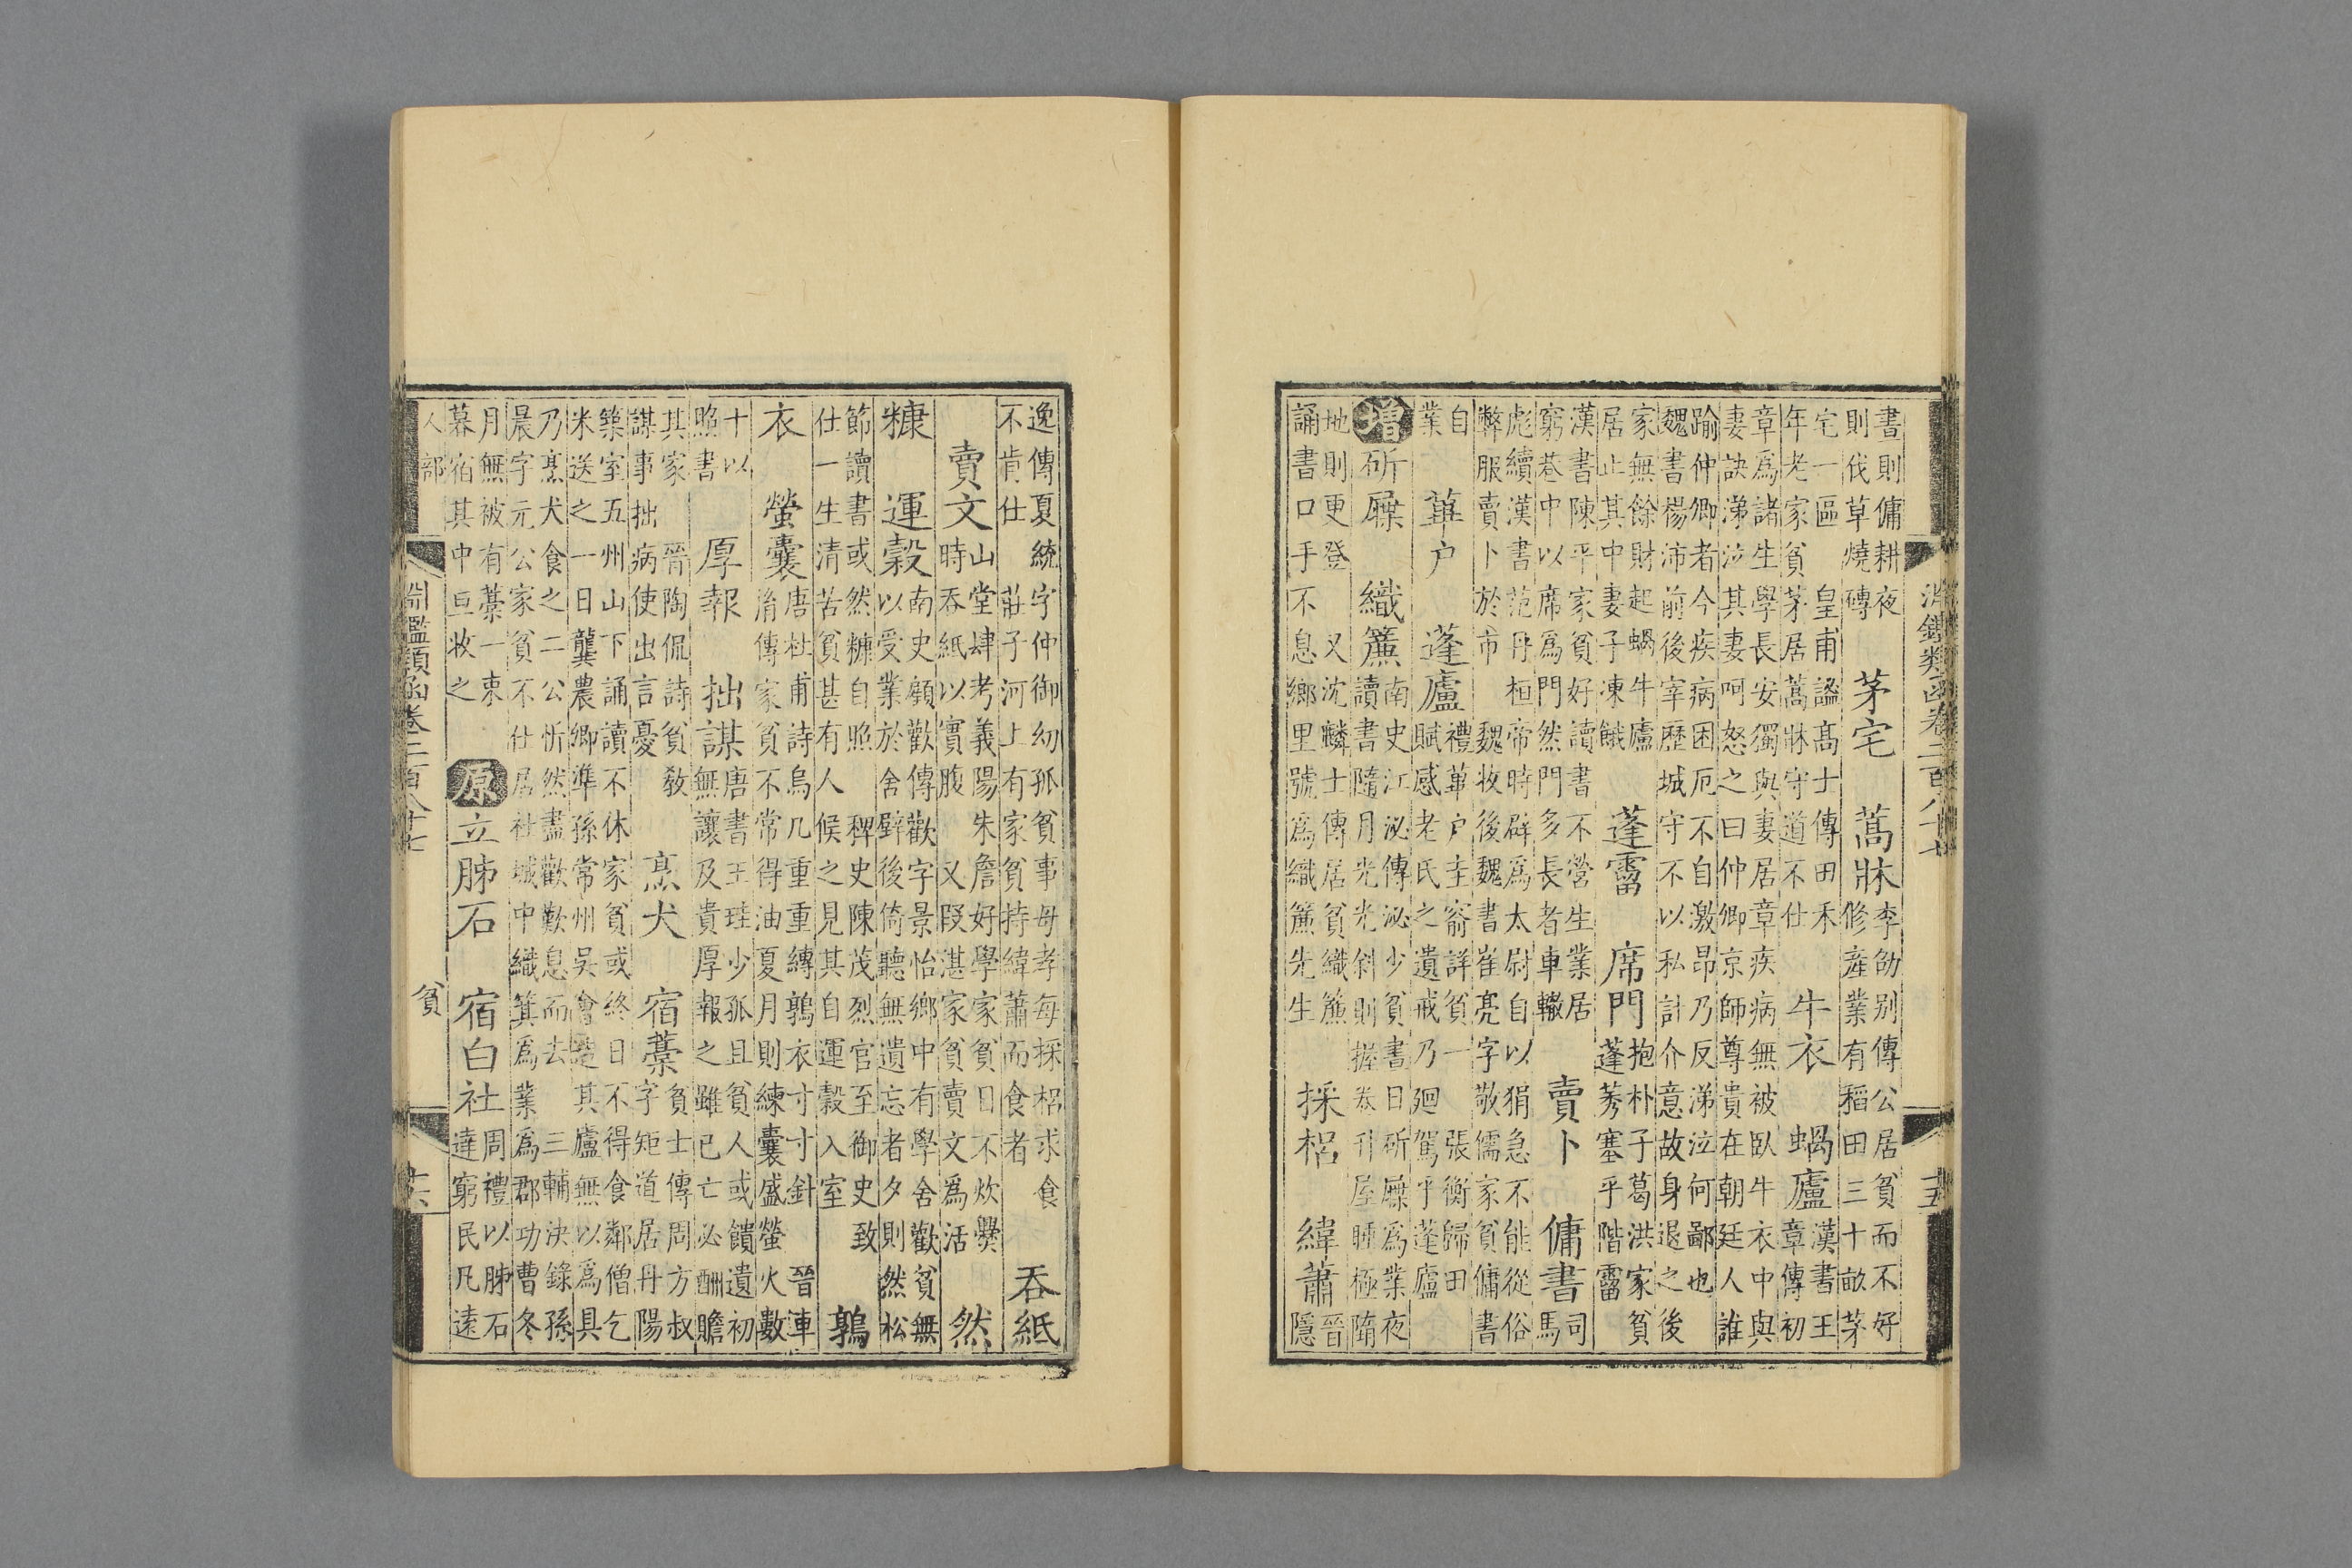 淵鑑類函卷二百八十七 十五
晝則傭耕夜
則伐草燒磚
茅宅 蒿牀
李劭别傳公居貧而不好
修產業有稻田三十畝茅
宅一區 皇甫謐髙士傳田禾
年老家貧茅居蒿牀守道不仕
牛衣 蝸廬
漢書王
章傳初
章爲諸生學長安獨與妻居章疾病無被臥牛衣中與
妻訣涕泣其妻呵怒之曰仲卿京師尊貴在朝廷人誰
踰仲卿者今疾病困厄不自激昂乃反涕泣何鄙也
魏書楊沛前後宰歷城守不以私計介意故身退之後
家無餘財起蝸牛廬
居止其中妻子凍餓
蓬霤 席門
抱朴子葛洪家貧
蓬莠塞乎階霤
漢書陳平家貧好讀書不營生業居
窮巷中以席爲門然門多長者車轍
賣卜 傭書
司
馬
彪續漢書范丹桓帝時辟爲太尉自以狷急不能從俗
弊服賣卜於市 魏收後魏書崔亮字敬儒家貧傭書
自
業
蓽户 蓬廬
禮蓽户圭窬詳貧一 張衡歸田
賦感老氏之遺戒乃廻駕乎蓬廬
增 斫屧 織簾
南史江泌傳泌少貧書日斫屧爲業夜
讀書隨月光光斜則握卷升屋睡極墮
地則更登 又沈麟士傳居貧織簾
誦書口手不息鄉里號爲織簾先生
採梠 緯蕭
晉
隱
逸傳夏統字仲御幼孤貧事母孝每採梠求食
不肯仕 莊子河上有家貧持緯蕭而食者
吞紙
賣文
山堂肆考義陽朱詹好學家貧日不炊爨
時吞紙以實腹 又段湛家貧賣文爲活
然
糠 運穀
南史顧歡傳歡字景怡鄉中有學舍歡貧無
以受業於舍壁後倚聽無遺忘者夕則然松
節讀書或然糠自照 稗史陳茂烈官至御史致
仕一生清苦貧甚有人候之見其自運穀入室
鶉
衣 螢囊
唐杜甫詩烏几重重縛鶉衣寸寸針 晉車
胤傳家貧不常得油夏月則練囊盛螢火數
十以
照書
厚報 拙謀
唐書王珪少孤且貧人或饋遺初
無讓及貴厚報之雖已亡必酬贍
其家 晉陶侃詩貧敎
謀事拙病使出言憂
烹犬 宿藁
貧士傳周方叔
字矩道居丹陽
築室五州山下誦讀不休家貧或終日不得食鄰僧乞
米送之一日龔農卿準孫常州吳會其廬無以爲具
乃烹犬食之二公忻然盡歡歎息而去 三輔決錄孫
晨字元公家貧不仕居社城中織箕爲業爲郡功曹冬
月無被有藁一束
暮宿其中旦收之
原 立肺石 宿白社
周禮以肺石
達窮民凡遠
人部 淵鑑類函卷二百八十七 貧 十六